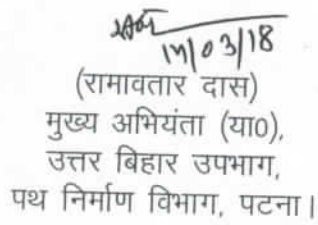 14/03/18
(रामावतार दास)
मुख्य अभियंता (या0),
उत्तर बिहार उपभाग,
पथ निर्माण विभाग, पटना।